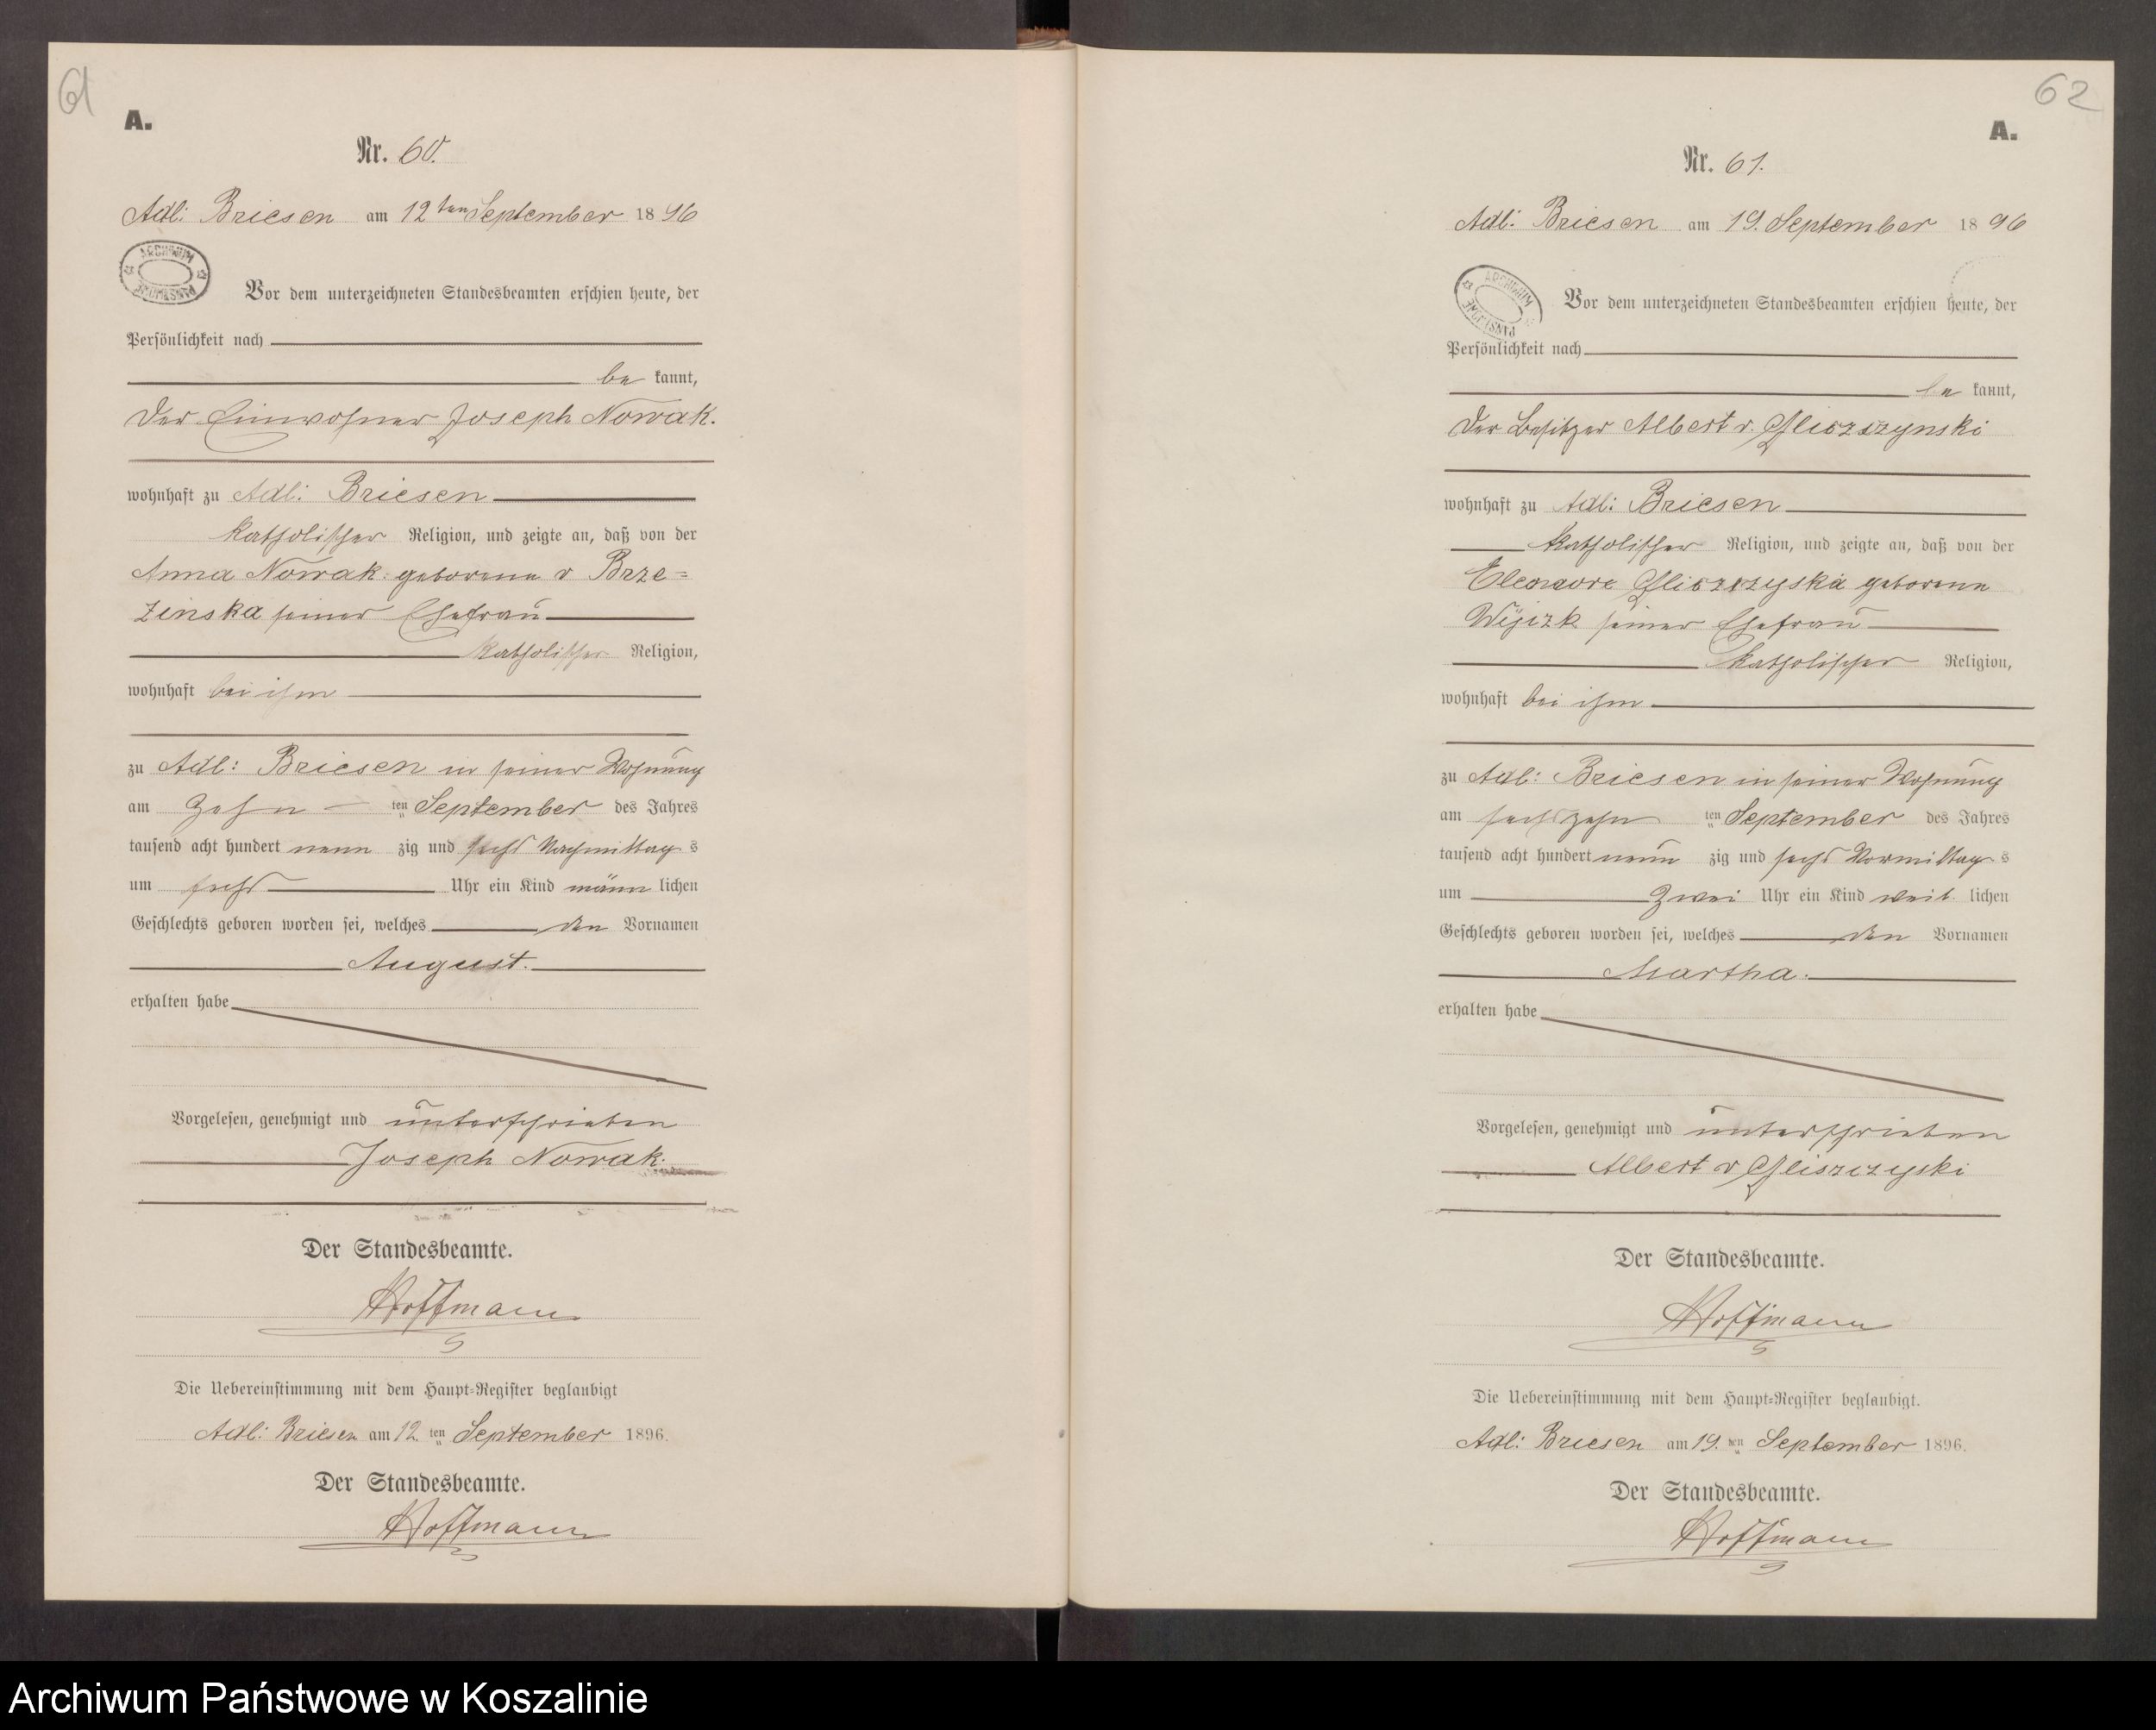 61
A.
Nr. 60.
Adl: Briesen am 12ten September 1896
ARCHIWUM PAŃSTWOWE
Vor dem unterzeichneten Standesbeamten erschien heute, der
Persönlichkeit nach
be kannt,
der Einwohner Joseph Nowak.
wohnhaft zu Adl: Briesen
katholischer Religion, und zeigte an, daß von der
Anna Nowak geborene v Brze=
zinska seiner Ehefrau
katholischer Religion,
wohnhaft bei ihm
zu Adl: Briesen in seiner Wohnung
am Zehn ten September des Jahres
tausend acht hundert neun zig und sechs Nachmittag s
um sechs Uhr ein Kind männ lichen
Geschlechts geboren worden sei, welches den Vornamen
August.
erhalten habe
Vorgelesen, genehmigt und unterschrieben
Joseph Nowak.
Der Standesbeamte.
Hoffmann
Die Uebereinstimmung mit dem Haupt-Register beglaubigt
Adl: Briesen am 12 ten September 1896.
Der Standesbeamte.
Hoffmann
62
A.
Nr. 61.
Adl: Briesen am 19. September 1896
ARCHIWUM PAŃSTWOWE
Vor dem unterzeichneten Standesbeamten erschien heute, der
Persönlichkeit nach
be kannt,
der Besitzer Albert v. Gliszczynski
wohnhaft zu Adl: Briesen
katholischer Religion, und zeigte an, daß von der
Eleonore Gliszczyska geborene
seiner Ehefrau
katholischer Religion,
wohnhaft bei ihm
zu Adl: Briesen in seiner Wohnung
am sechszehn ten September des Jahres
tausend acht hundert neun zig und sechs Vormittag s
um zwei Uhr ein Kind weib lichen
Geschlechts geboren worden sei, welches den Vornamen
Martha.
erhalten habe
Vorgelesen, genehmigt und unterschrieben
Albert v Gliszczyski
Der Standesbeamte.
Hoffmann
Die Uebereinstimmung mit dem Haupt-Register beglaubigt.
Adl: Briesen am 19. ten September 1896.
Der Standesbeamte.
Hoffmann
Archiwum Państwowe w Koszalinie